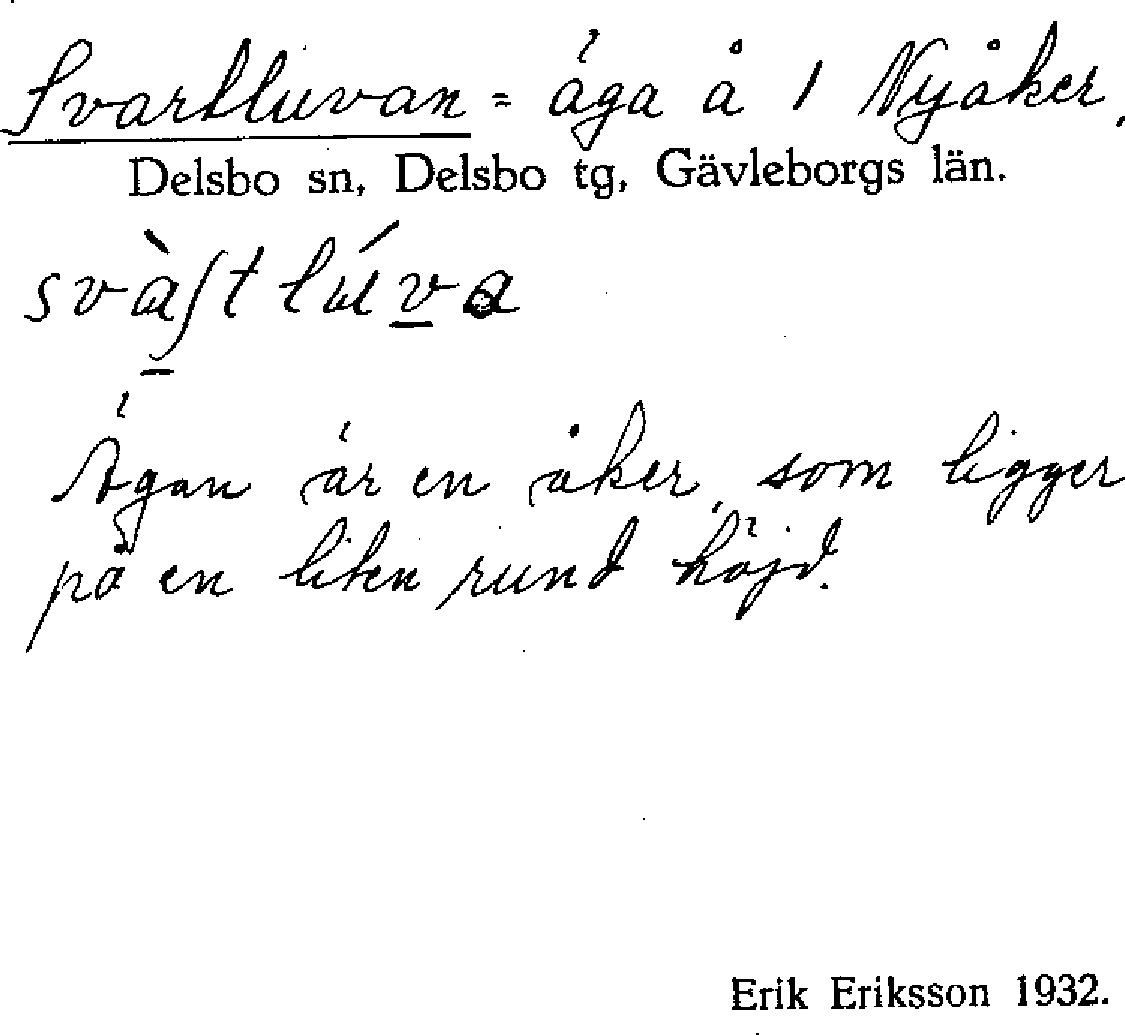 Svartluvan = äga å 1 Nyåker.
Delsbo sn, Delsbo tg, Gävleborgs län.
svàʃt lúva
Ägan är en åker, som ligger
på en liten rund höjd.
Erik Eriksson 1932.